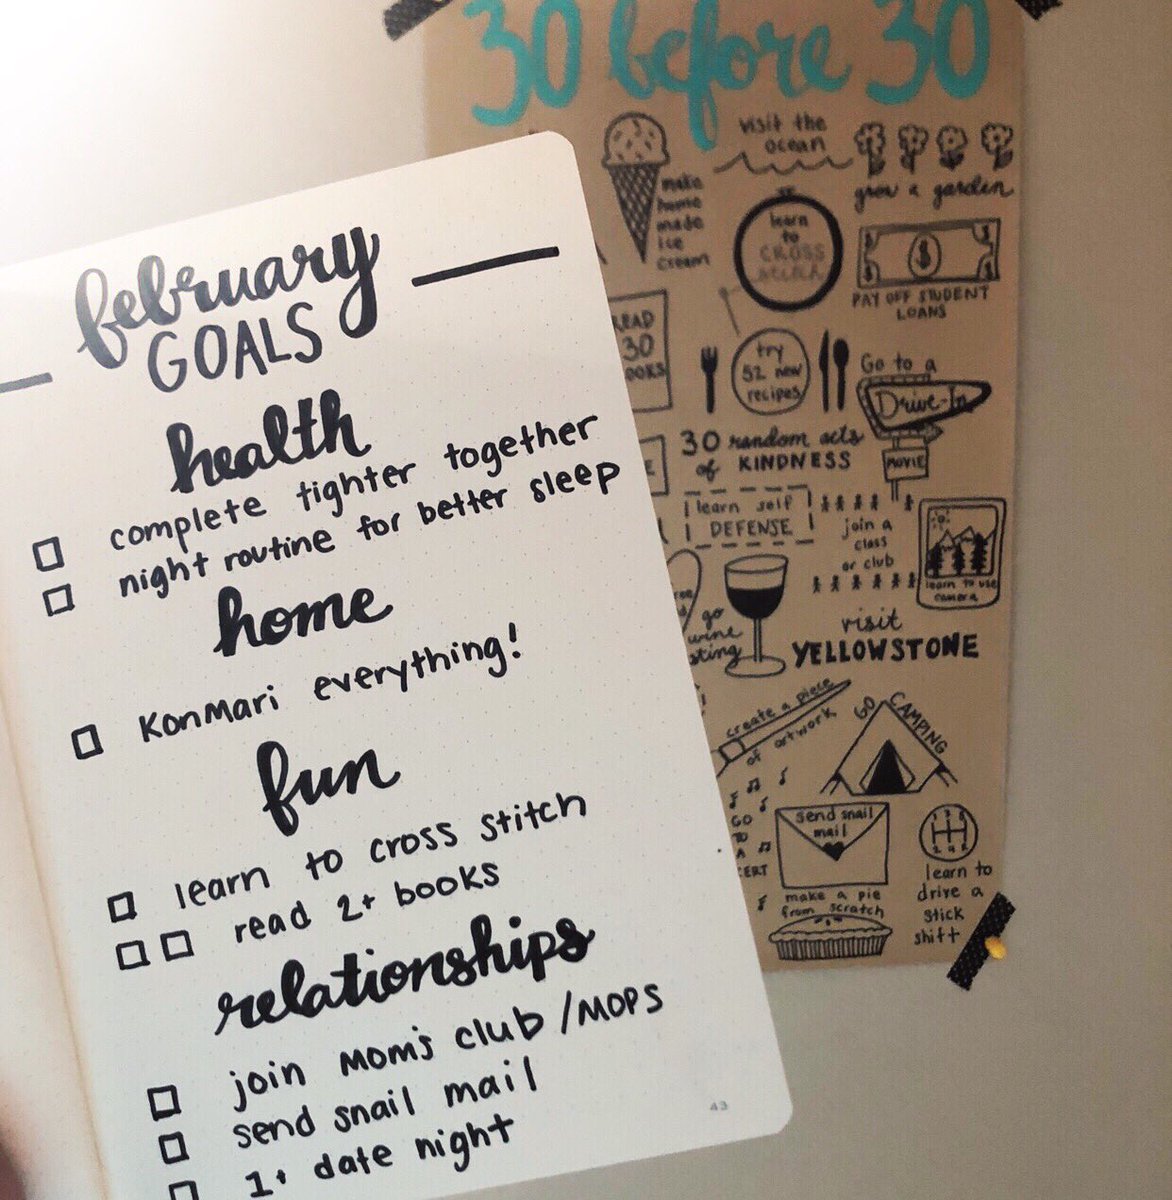 february
GOALS
health
complete tighter together
night routine for better sleep
home
KonMari everything!
fun
learn to cross stitch
read 2+ books
relationships
join MOM's club/MOPS
send snail mail
1+ date night
43
30 before 30
make
home
made
ice
cream
visit the
ocean
grow a garden
learn
to
CROSS
PAY OFF STUDENT
LOANS
READ
30
BOOKS
try
52 new
recipes
Go to a
Drive-In
MOVIE
30 random acts
of KINDNESS
learn self
DEFENSE
join a
class
or club
learn to use
camera
go
wine
visit
YELLOWSTONE
create a piece
of artwork
GO CAMPING
GO
TO
A
send snail
mail
make a pie
from scratch
1 3 5
2 4 6
learn to
drive a
stick
shift